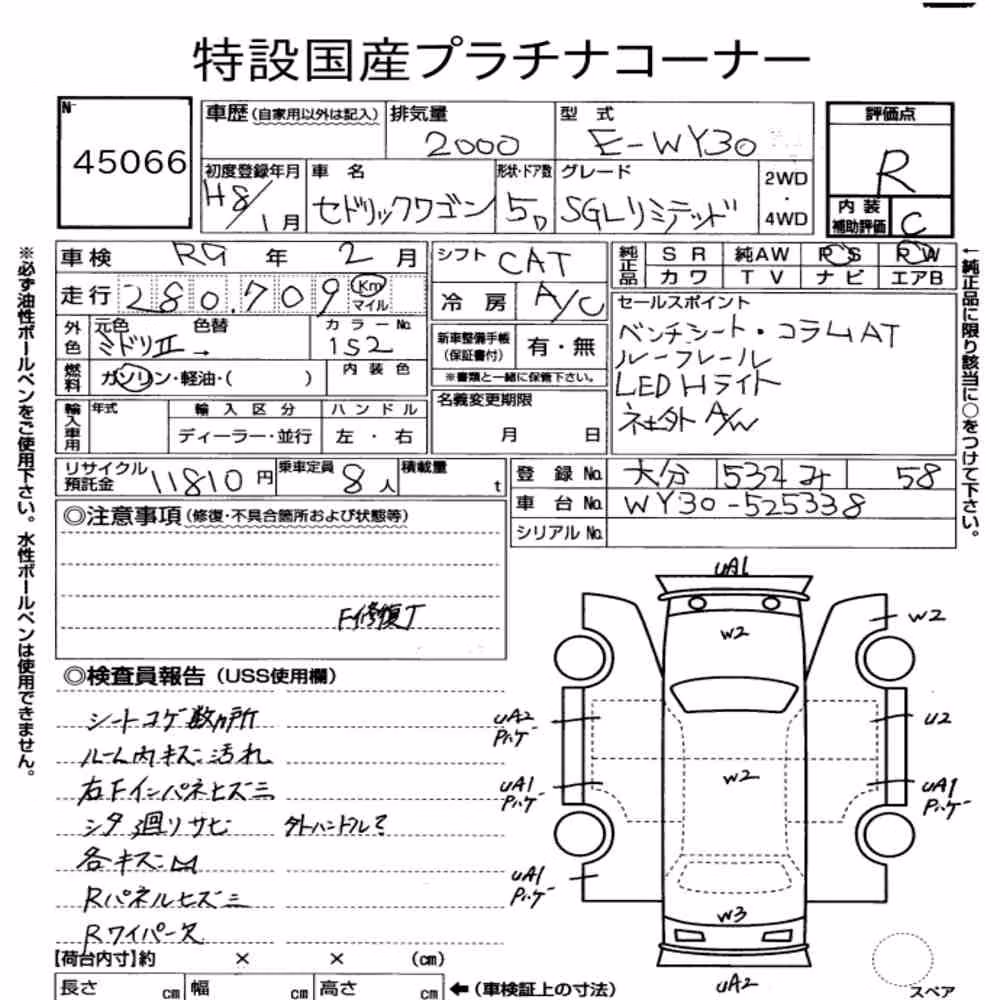 特設国産プラチナコーナー
No
45066
車歴(自家用以外は記入)
排気量
2000
型 式
E-WY30
評価点
R
内装
補助評価
C
初度登録年月
H8/1月
車 名
セドリックワゴン
形状・ドア数
5D
グレード
SGLリミテッド
2WD
・
4WD
車検 R9年 2月
シフト CAT
純正品
SR 純AW PS PW
カワ TV ナビ エアB
走行 280,709 Km
マイル
冷房 A/C
外色
元色 色替
ミドリII →
カラーNo.
152
新車整備手帳
(保証書付)
有・無
※書類と一緒に保管下さい。
セールスポイント
ベンチシート・コラムAT
ルーフレール
LED Hライト
社外 A/W
燃料
ガソリン・軽油・( )
内装色
名義変更期限
月 日
輸入車用
年式
輸入区分
ディーラー・並行
ハンドル
左・右
リサイクル
預託金
11810円
乗車定員
8人
積載量
t
登録No. 大分 532 み 58
車台No. WY30-525338
シリアルNo.
◎注意事項(修復・不具合箇所および状態等)
F修復丁
◎検査員報告(USS使用欄)
シートコゲ数ヶ所
ルーム内キズ汚れ
右FインパネヒズミI
シタ廻りサビ 外ハンドルミ
各キズ凹
Rパネルヒズミ
Rワイパー欠
【荷台内寸】約 × × (cm)
長さ cm 幅 cm 高さ cm
←(車検証上の寸法)
※必ず油性ボールペンをご使用下さい。水性ボールペンは使用できません。
←純正品に限り該当に○をつけて下さい。
UA1
W2
W2
UA2
Pハゲ
U2
UA1
Pハゲ
W2
UA1
Pハゲ
UA1
Pハゲ
W3
UA2
スペア